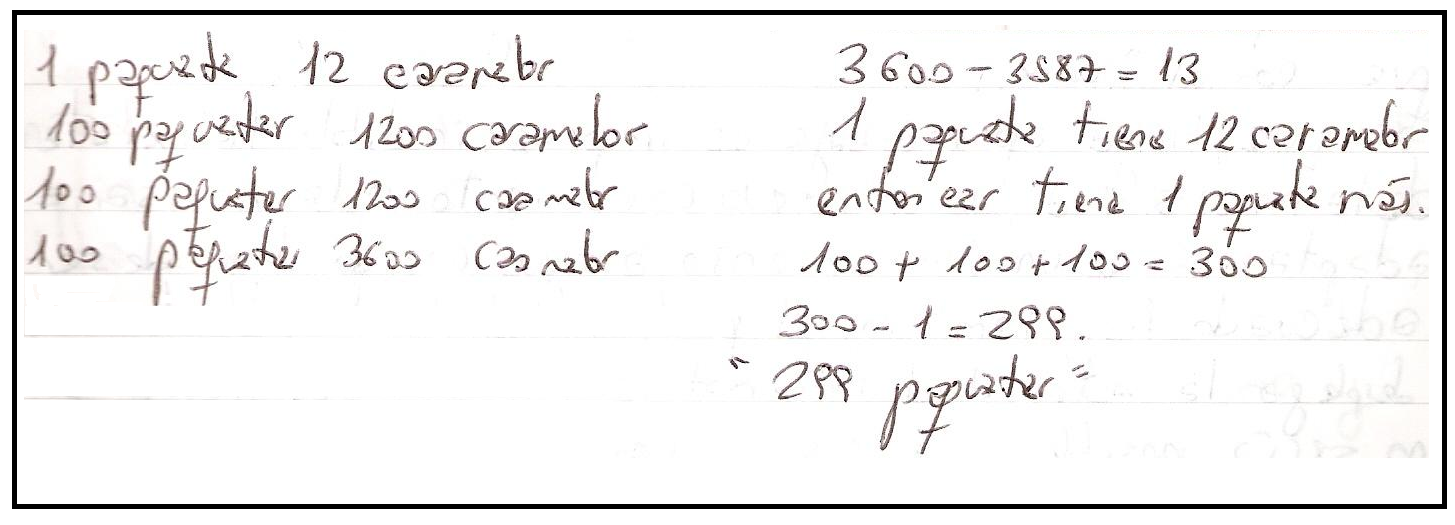 1 paquete 12 caramelos
100 paquetes 1200 caramelos
100 paquetes 1200 caramelos
100 paquetes 3600 caramelos
3600 - 3587 = 13
1 paquete tiene 12 caramelos
entonces tiene 1 paquete más.
100 + 100 + 100 = 300
300 - 1 = 299.
" 299 paquetes "